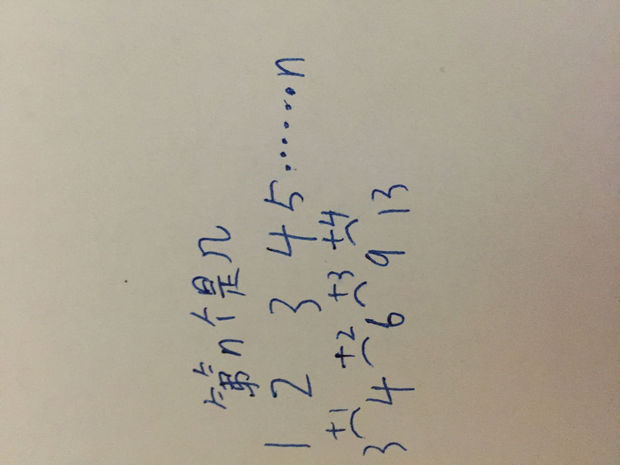 第n个是几
1 2 3 4 5 ······· n
+1 +2 +3 +4
3 4 6 9 13